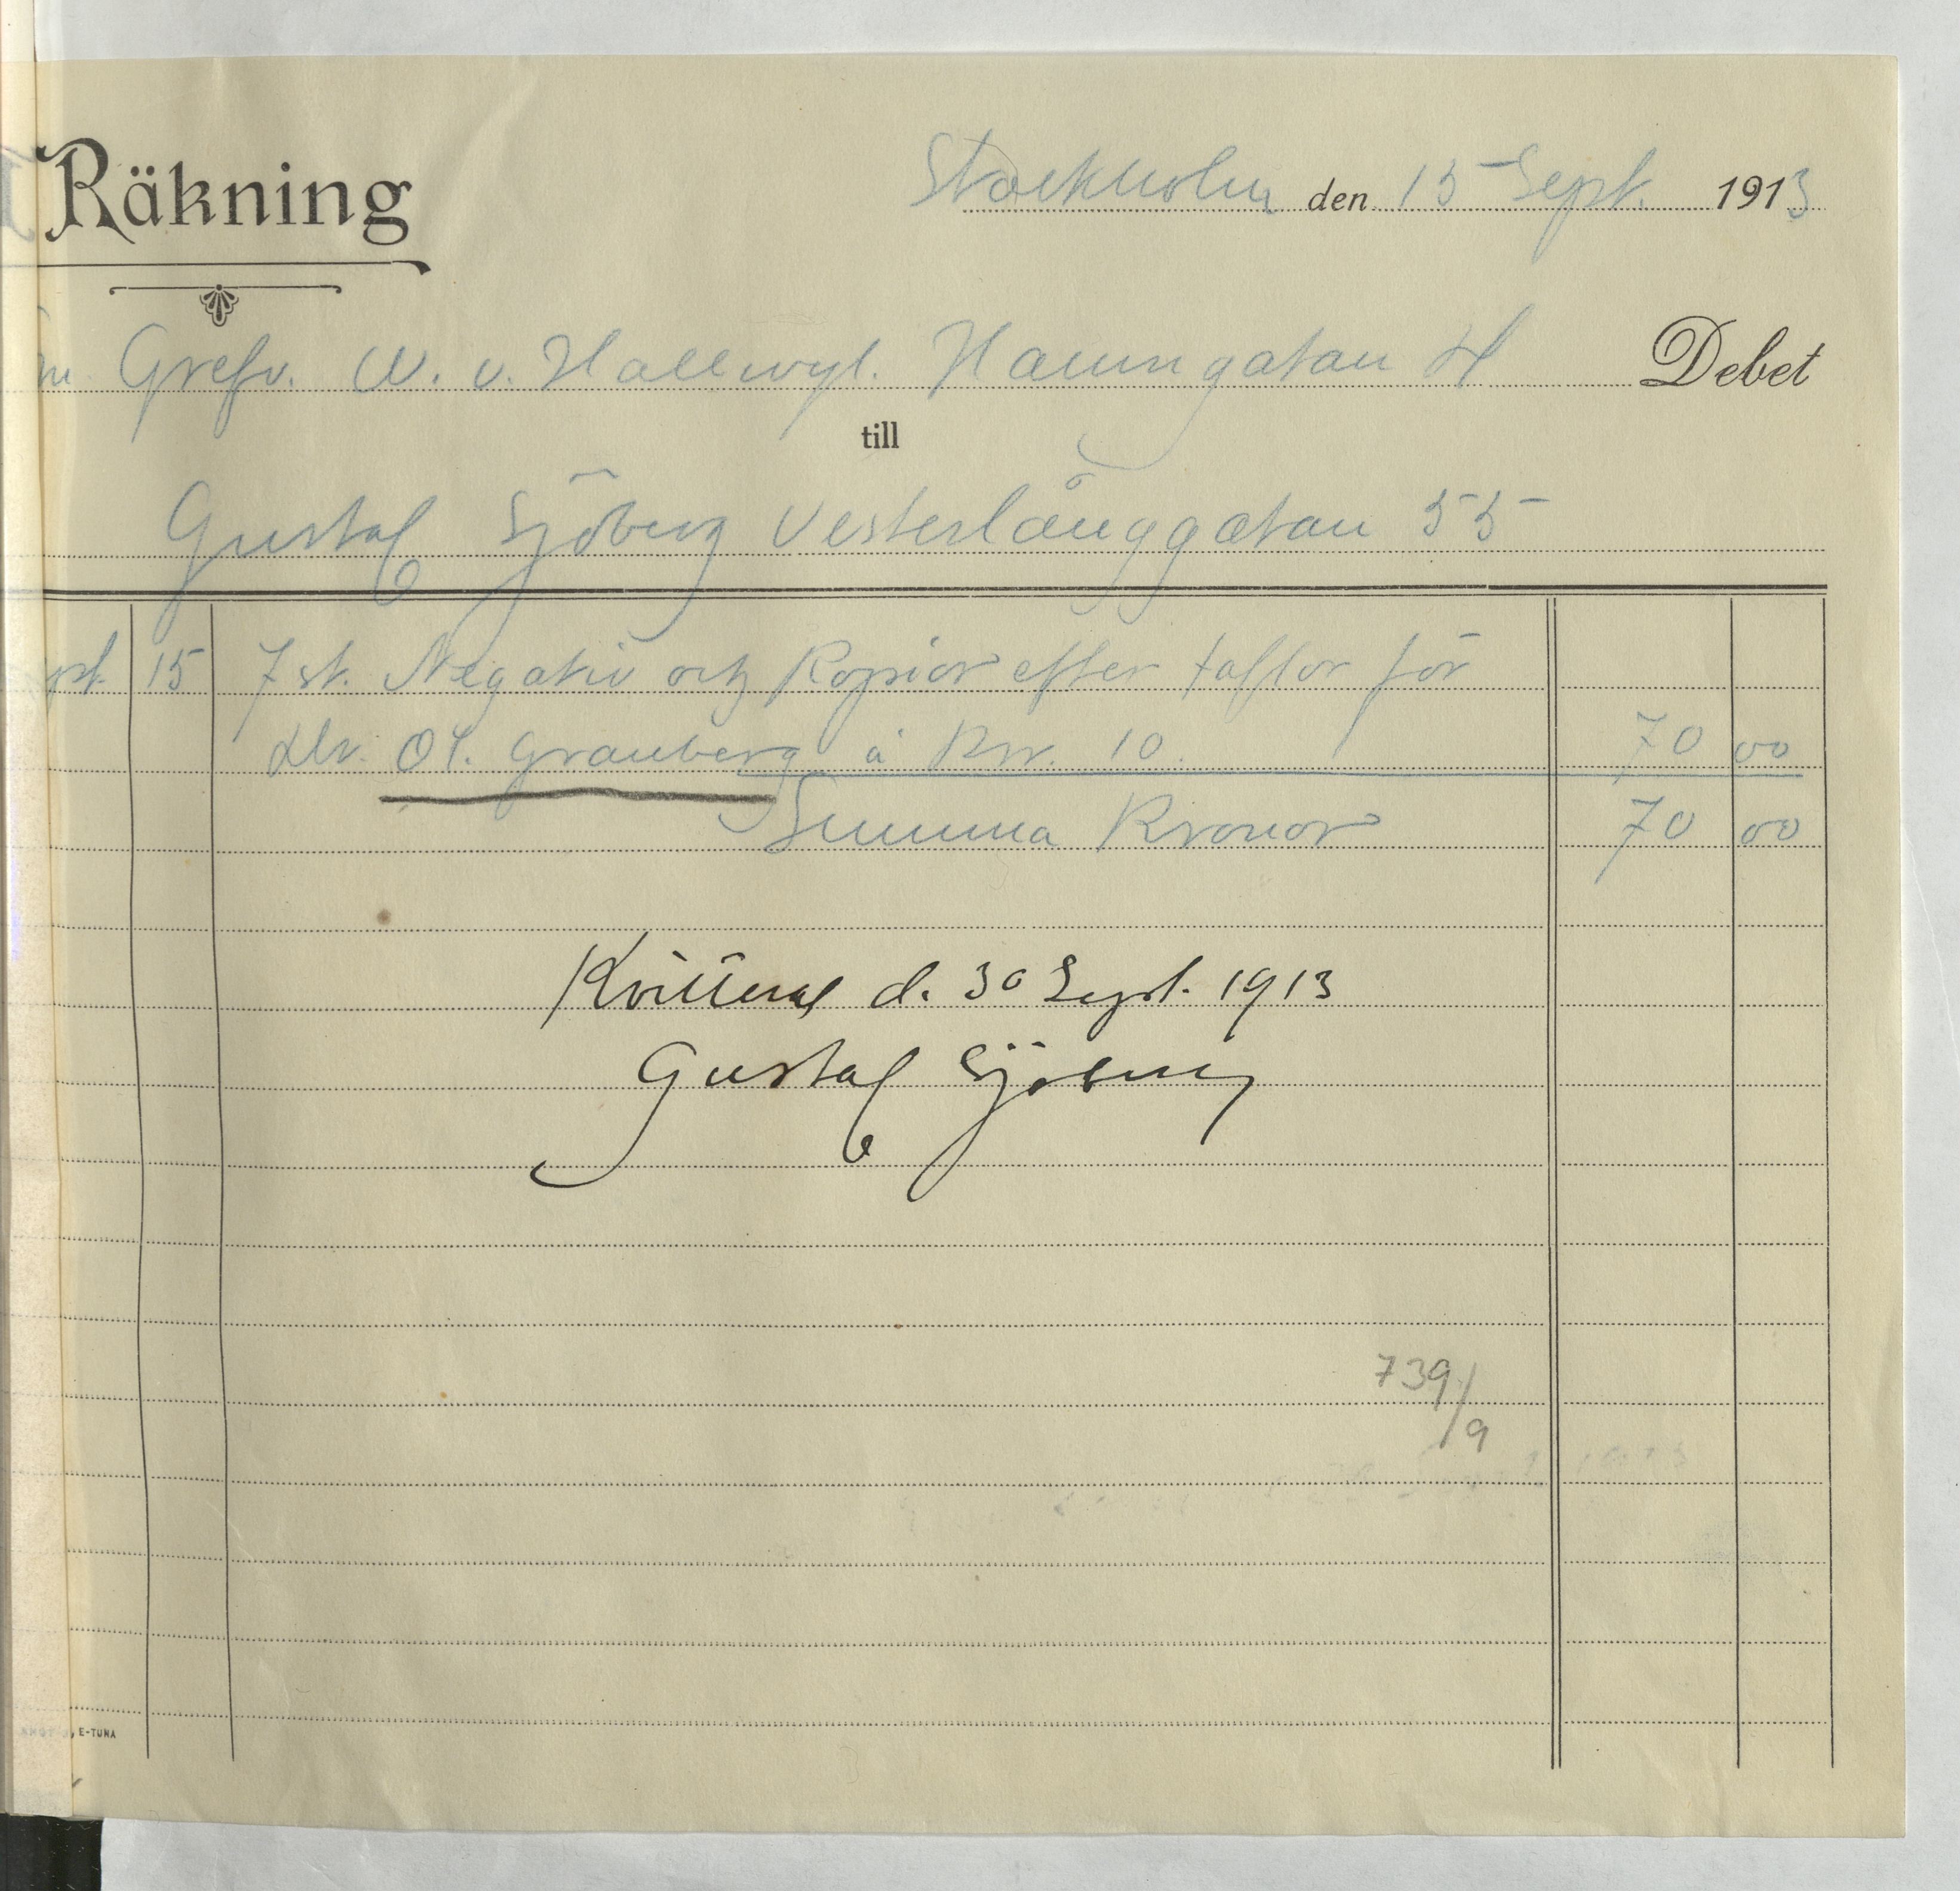 Räkning
Stockholm den 15 Sept. 1913
Grefv. W. v. Hallwyl. Hamngatan 4 Debet
till
Gustaf Sjöberg Vesterlånggatan 55
15 7 st. Negativ och Kopior efter taflor för
Dr. O. Granberg à Kr. 10. 70 00
Summa Kronor 70 00
Kvitteras d. 30 Sept. 1913
Gustaf Sjöberg
739/9
E-TUNA